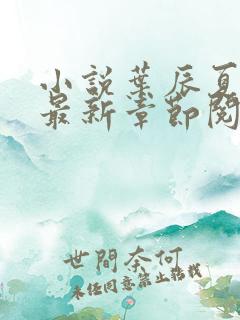 小说叶辰夏
最新章节阅
世間奈何
未经同意禁止转载